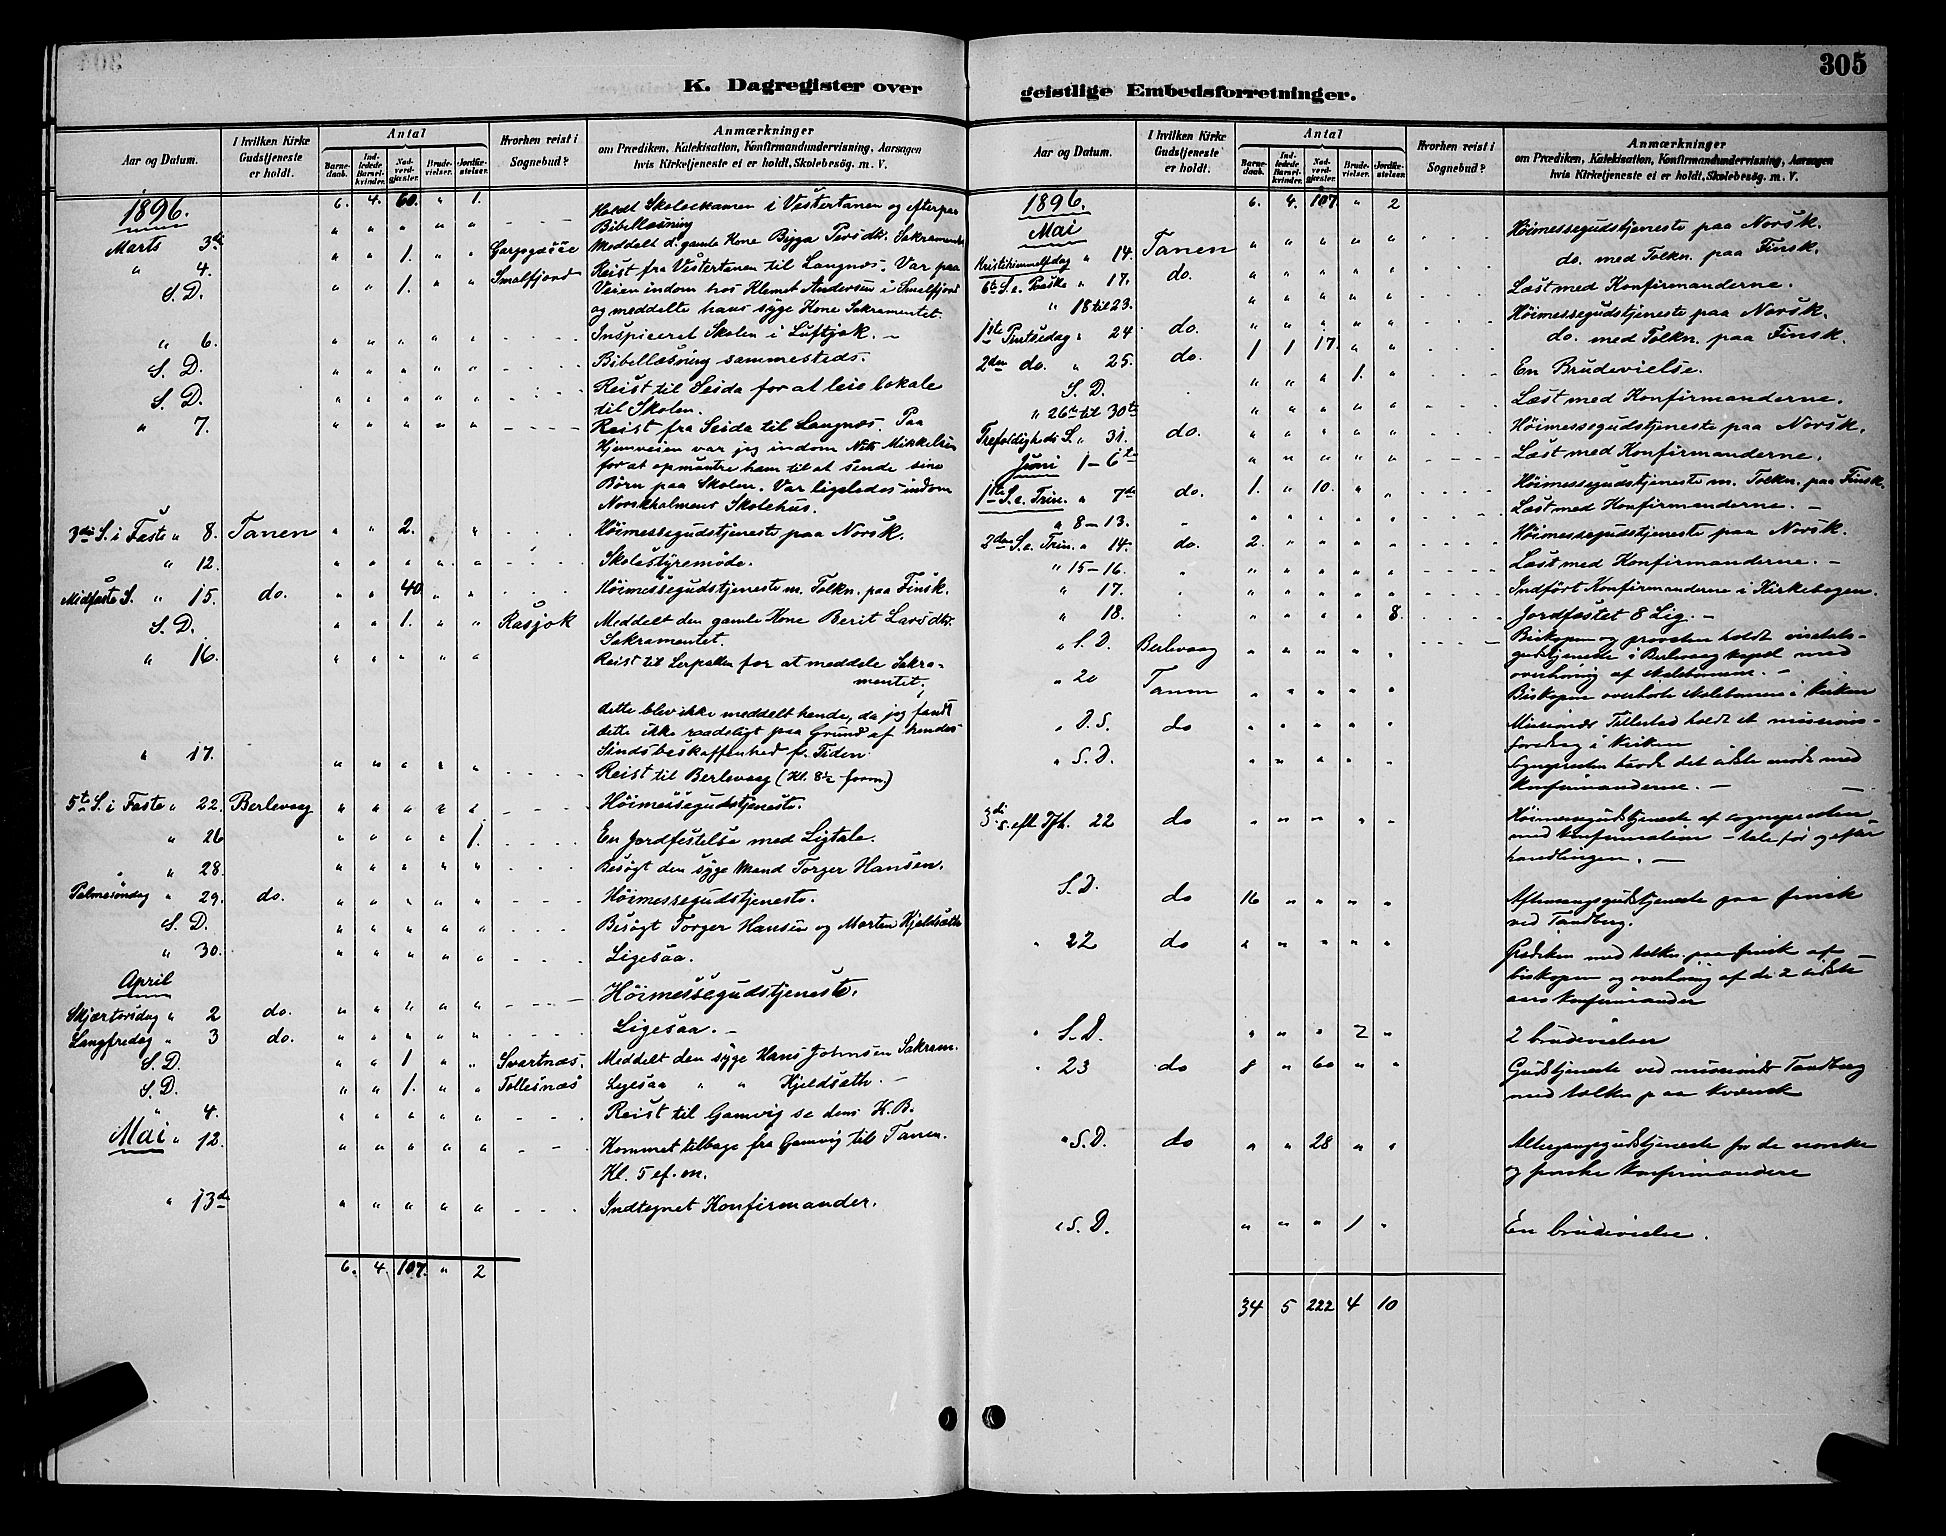 305
K. Dagregister over
Aar og Datum.
I hvilken Kirke Gudstjeneste er holdt.
Antal
Barnedaab.
Indledede Barselkvinder.
Nadverdgjæster.
Brudevielser.
Jordfæstelser.
Hvorhen reist i Sognebud?
Anmærkninger
om Prædiken, Katekisation, Konfirmandundervisning, Aarsagen
hvis Kirketjeneste ei er holdt, Skolebesøg. m. V.
1896. 6. 4. 60. " 1.
Holdt Skoleexamen i Vestertanen og efterpaa
Bibellæsning
Marts 3die " " 1. " " Meddelt d. gamle Kone Bigga Persdtr. Sakramentet
" 4. Smalfjord Reist fra Vestertanen til Langnæs. Var paa
S. D. " " 1. " " Veien indom hos Klemet Andersen i Smalfjord
og meddelte hans syge Kone Sakramentet.
" 6. Inspiceret Skolen i Luftjok. –
S. D. Bibellæsning sammesteds.
S. D. Reist til Seida for at leie lokale
til Skolen.
" 7. Reist fra Seida til Langnæs. Paa
Hjemveien var jeg indom Nils Mikkelsen
for at opmuntre ham til at sende sine
Børn paa Skolen. Var ligeledes indom
Norskholmens Skolehus.
3die S. i Faste " 8. Tanen " " 2. " Høimessegudstjeneste paa Norsk.
" 12. Skolestyremøde.
Midfaste S. " 15. do. " " 40 " " Høimessegudstjeneste m. Tolkn. paa Finsk.
S. D. " " 1. " " Rasjok Meddelt den gamle Kone Berit Larsdtr.
Sakramentet.
" 16. Reist til Lerpollen for at meddele Sakra-
mentet;
dette blev ikke meddelt hende, da jeg fandt
dette ikke raadeligt paa Grund af hendes
Sindsbeskaffenhed f. Tiden.
" 17. Reist til Berlevaag (Kl. 8½ form.)
5te S. i Faste " 22. Berlevaag Høimessegudstjeneste.
" 26 " " " " 1. En Jordfestelse med Ligtale.
" 28. Besøgt den syge Mand Torger Hansen.
Palmesøndag " 29. do. Høimessegudstjeneste.
S. D. Besøgt Torger Hansen og Morten Hjeldsæth
" 30. Ligesaa.
April
Skjærtorsdag " 2 do. Høimessegudstjeneste.
Langfredag " 3 do. Ligesaa. –
S. D. " " 1 " " Svartnæs. Meddelt den syge Hans Johnsen Sakram.
S. D. " " 1. " " Tollesnæs Ligesaa " " Hjeldsæth. –
" 4. Reist til Gamvig se dens K.B.
Mai " 12. Kommet tilbage fra Gamvig til Tanen.
Kl. 5 ef. m.
" 13de Indtegnet Konfirmander.
6. 4. 107. " 2
geistlige Embedsforretninger.
Aar og Datum.
I hvilken Kirke Gudstjeneste er holdt.
Antal
Barnedaab.
Indledede Barselkvinder.
Nadverdgjæster.
Brudevielser.
Jordfæstelser.
Hvorhen reist i Sognebud?
Anmærkninger
om Prædiken, Katekisation, Konfirmandundervisning, Aarsagen
hvis Kirketjeneste ei er holdt, Skolebesøg. m. V.
1896. 6. 4. 107. " 2
Mai
Kristihimmelfdag " 14. Tanen Høimessegudstjeneste paa Norsk.
6te S. e. Paaske " 17. do. do. med Tolkn. paa Finsk.
" 18 til 23. Læst med Konfirmanderne.
1ste Pintsedag " 24 do. Høimessegudstjeneste paa Norsk.
2den do. " 25. do. 1 1 17. " " do. med Tolkn. paa Finsk.
S. D. " " " 1. " En Brudevielse.
" 26de til 30te Læst med Konfirmanderne.
Trefoldigheds S. " 31. do. Høimessegudstjeneste paa Norsk.
Juni 1–6te Læst med Konfirmanderne.
1ste S. e. Trin. " 7de do. 1. " 10. " " Høimessegudstjeneste m. Tolkn. paa Finsk.
" 8–13. Læst med Konfirmanderne. –
2den S. e. Trin. " 14. do. 2. Høimessegudstjeneste paa Norsk.
" 15–16. Læst med Konfirmanderne. –
" 17. Indført Konfirmanderne i Kirkebogen.
" 18. " " " " 8. Jordfæstet 8 Lig. –
" S. D. Berlevaag Biskopen og provsten holdt visitats-
gudstjeneste i Berlevaag kapel med
overhøring af skolebørnene. –
" 20 Tanen Biskopen overhørte skolebørnene i Kirken
" D. S. do Missionær Tillestad holdt et missions-
foredrag i Kirken
" S. D. Sognepresten havde det sidste møde med
Konfirmanderne. –
3di S. eft. Tfh. 22 do Høimessegudstjeneste af sognepresten
med konfirmation – tale før og efter
handlingen. –
S. D. do 16 Aftensangsgudstjeneste paa finsk
ved Tandberg.
" 22 do Prædiken med tolkn. paa finsk af
biskopen og overhøring af de 2 sidste
aars konfirmander
" S. D. 2 2 brudevielser
" 23 do 8 " 60 " " Gudstjeneste ved missionær Tandberg
med tolkn paa kvænsk
" S. D. do " " 28 " " Altergangsgudstjeneste for de norske
og finske konfirmandere
" S. D. " " " 1 " En brudevielse.
34 5 222 4 10